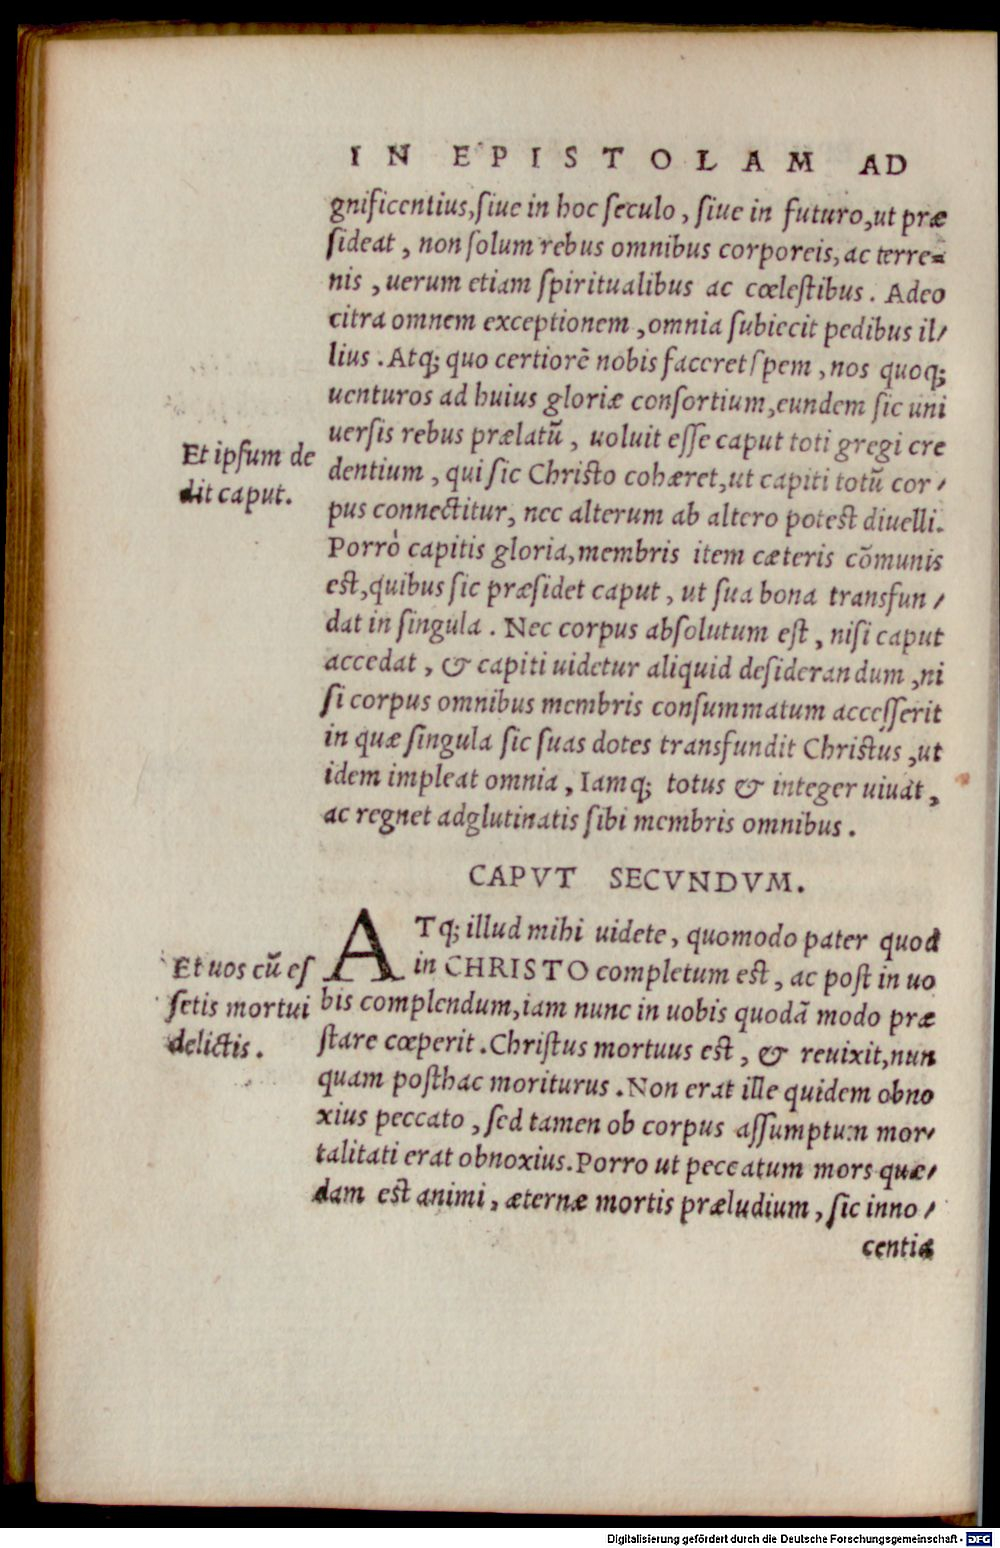 IN EPISTOLAM AD
gnificentius, ſiue in hoc ſeculo, ſiue in futuro, ut præ
ſideat, non ſolum rebus omnibus corporeis, ac terre=
nis, uerum etiam ſpiritualibus ac cœleſtibus. Adeo
citra omnem exceptionem, omnia ſubiecit pedibus il/
lius. Atq; quo certiorē nobis faceret ſpem, nos quoq;
uenturos ad huius gloriæ conſortium, eundem ſic uni
uerſis rebus prælatū, uoluit eſſe caput toti gregi cre
Et ipſum de
dit caput.
dentium, qui ſic Chriſto cohæret, ut capiti totū cor/
pus connectitur, nec alterum ab altero poteſt diuelli.
Porrò capitis gloria, membris item cæteris cōmunis
eſt, quibus ſic præſidet caput, ut ſua bona transfun/
dat in ſingula. Nec corpus abſolutum eſt, niſi caput
accedat, & capiti uidetur aliquid deſiderandum, ni
ſi corpus omnibus membris conſummatum acceſſerit
in quæ ſingula ſic ſuas dotes transfundit Chriſtus, ut
idem impleat omnia, Iamq; totus & integer uiuat,
ac regnet adglutinatis ſibi membris omnibus.
CAPVT SECVNDVM.
ATq; illud mihi uidete, quomodo pater quod
in CHRISTO completum eſt, ac poſt in uo
Et uos cū eſ
ſetis mortui
delictis.
bis complendum, iam nunc in uobis quodā modo præ
ſtare cœperit. Chriſtus mortuus eſt, & reuixit, nun
quam poſthac moriturus. Non erat ille quidem obno
xius peccato, ſed tamen ob corpus aſſumptum mor/
talitati erat obnoxius. Porro ut peccatum mors quæ/
dam eſt animi, æternæ mortis præludium, ſic inno/
centiæ
Digitalisierung gefördert durch die Deutsche Forschungsgemeinschaft - DFG